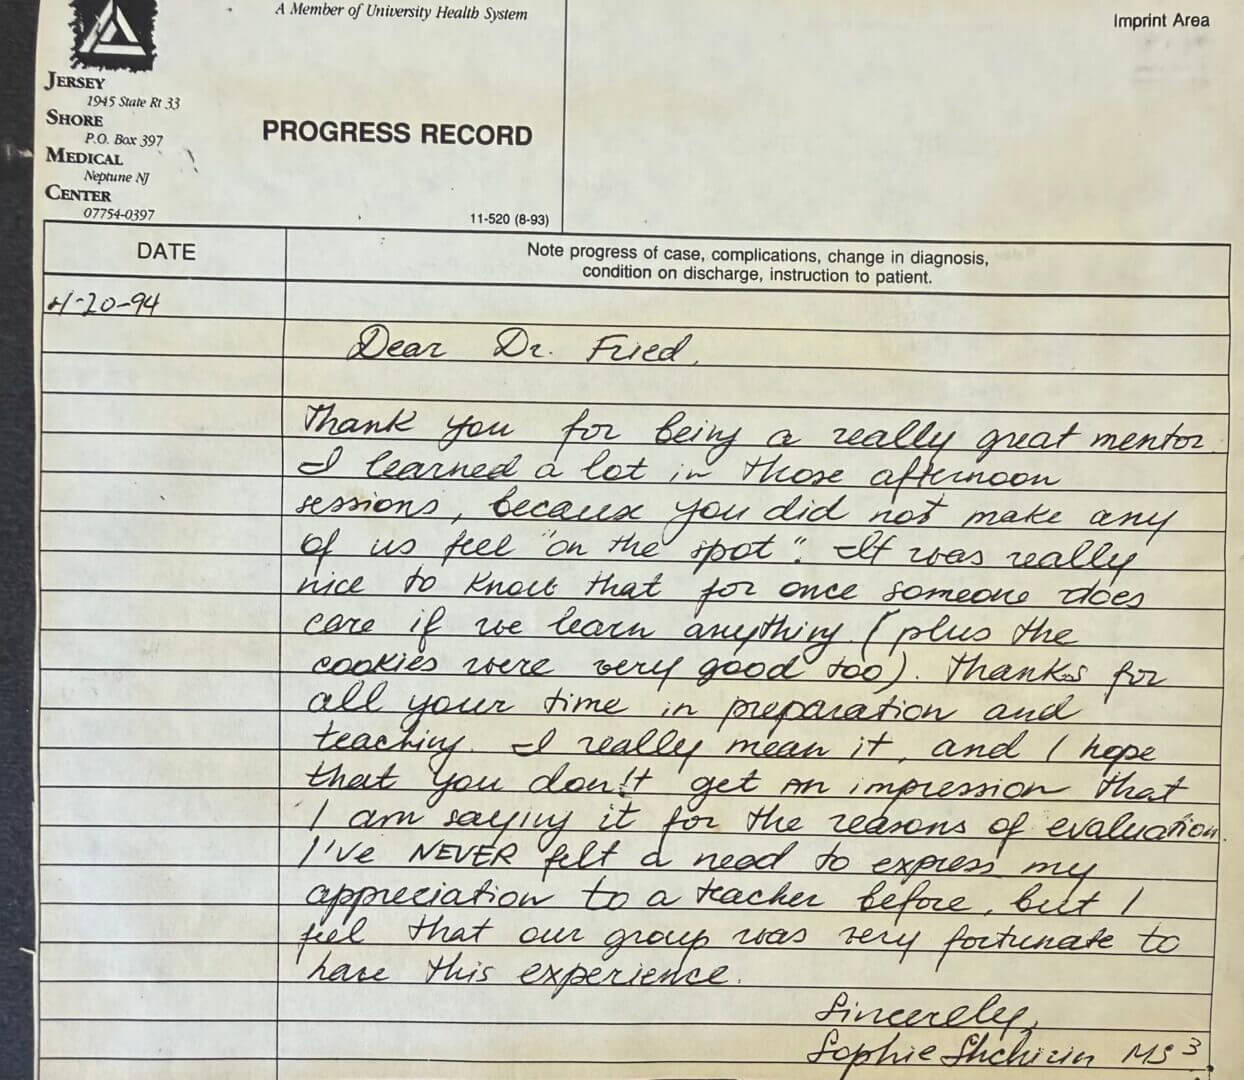 A Member of University Health System
Imprint Area
JERSEY
1945 State Rt 33
SHORE
P.O. Box 397
MEDICAL
Neptune NJ
CENTER
07754-0397
PROGRESS RECORD
11-520 (8-93)
DATE
Note progress of case, complications, change in diagnosis,
condition on discharge, instruction to patient.
4-20-94
Dear Dr. Fried,
Thank you for being a really great mentor.
I learned a lot in those afternoon
sessions, because you did not make any
of us feel "on the spot". It was really
nice to know that for once someone does
care if we learn anything (plus the
cookies were very good too). Thanks for
all your time in preparation and
teaching. I really mean it, and I hope
that you don't get an impression that
I am saying it for the reasons of evaluation.
I've NEVER felt a need to express my
appreciation to a teacher before, but I
feel that our group was very fortunate to
have this experience.
Sincerely,
Sophie Shchirin MS3